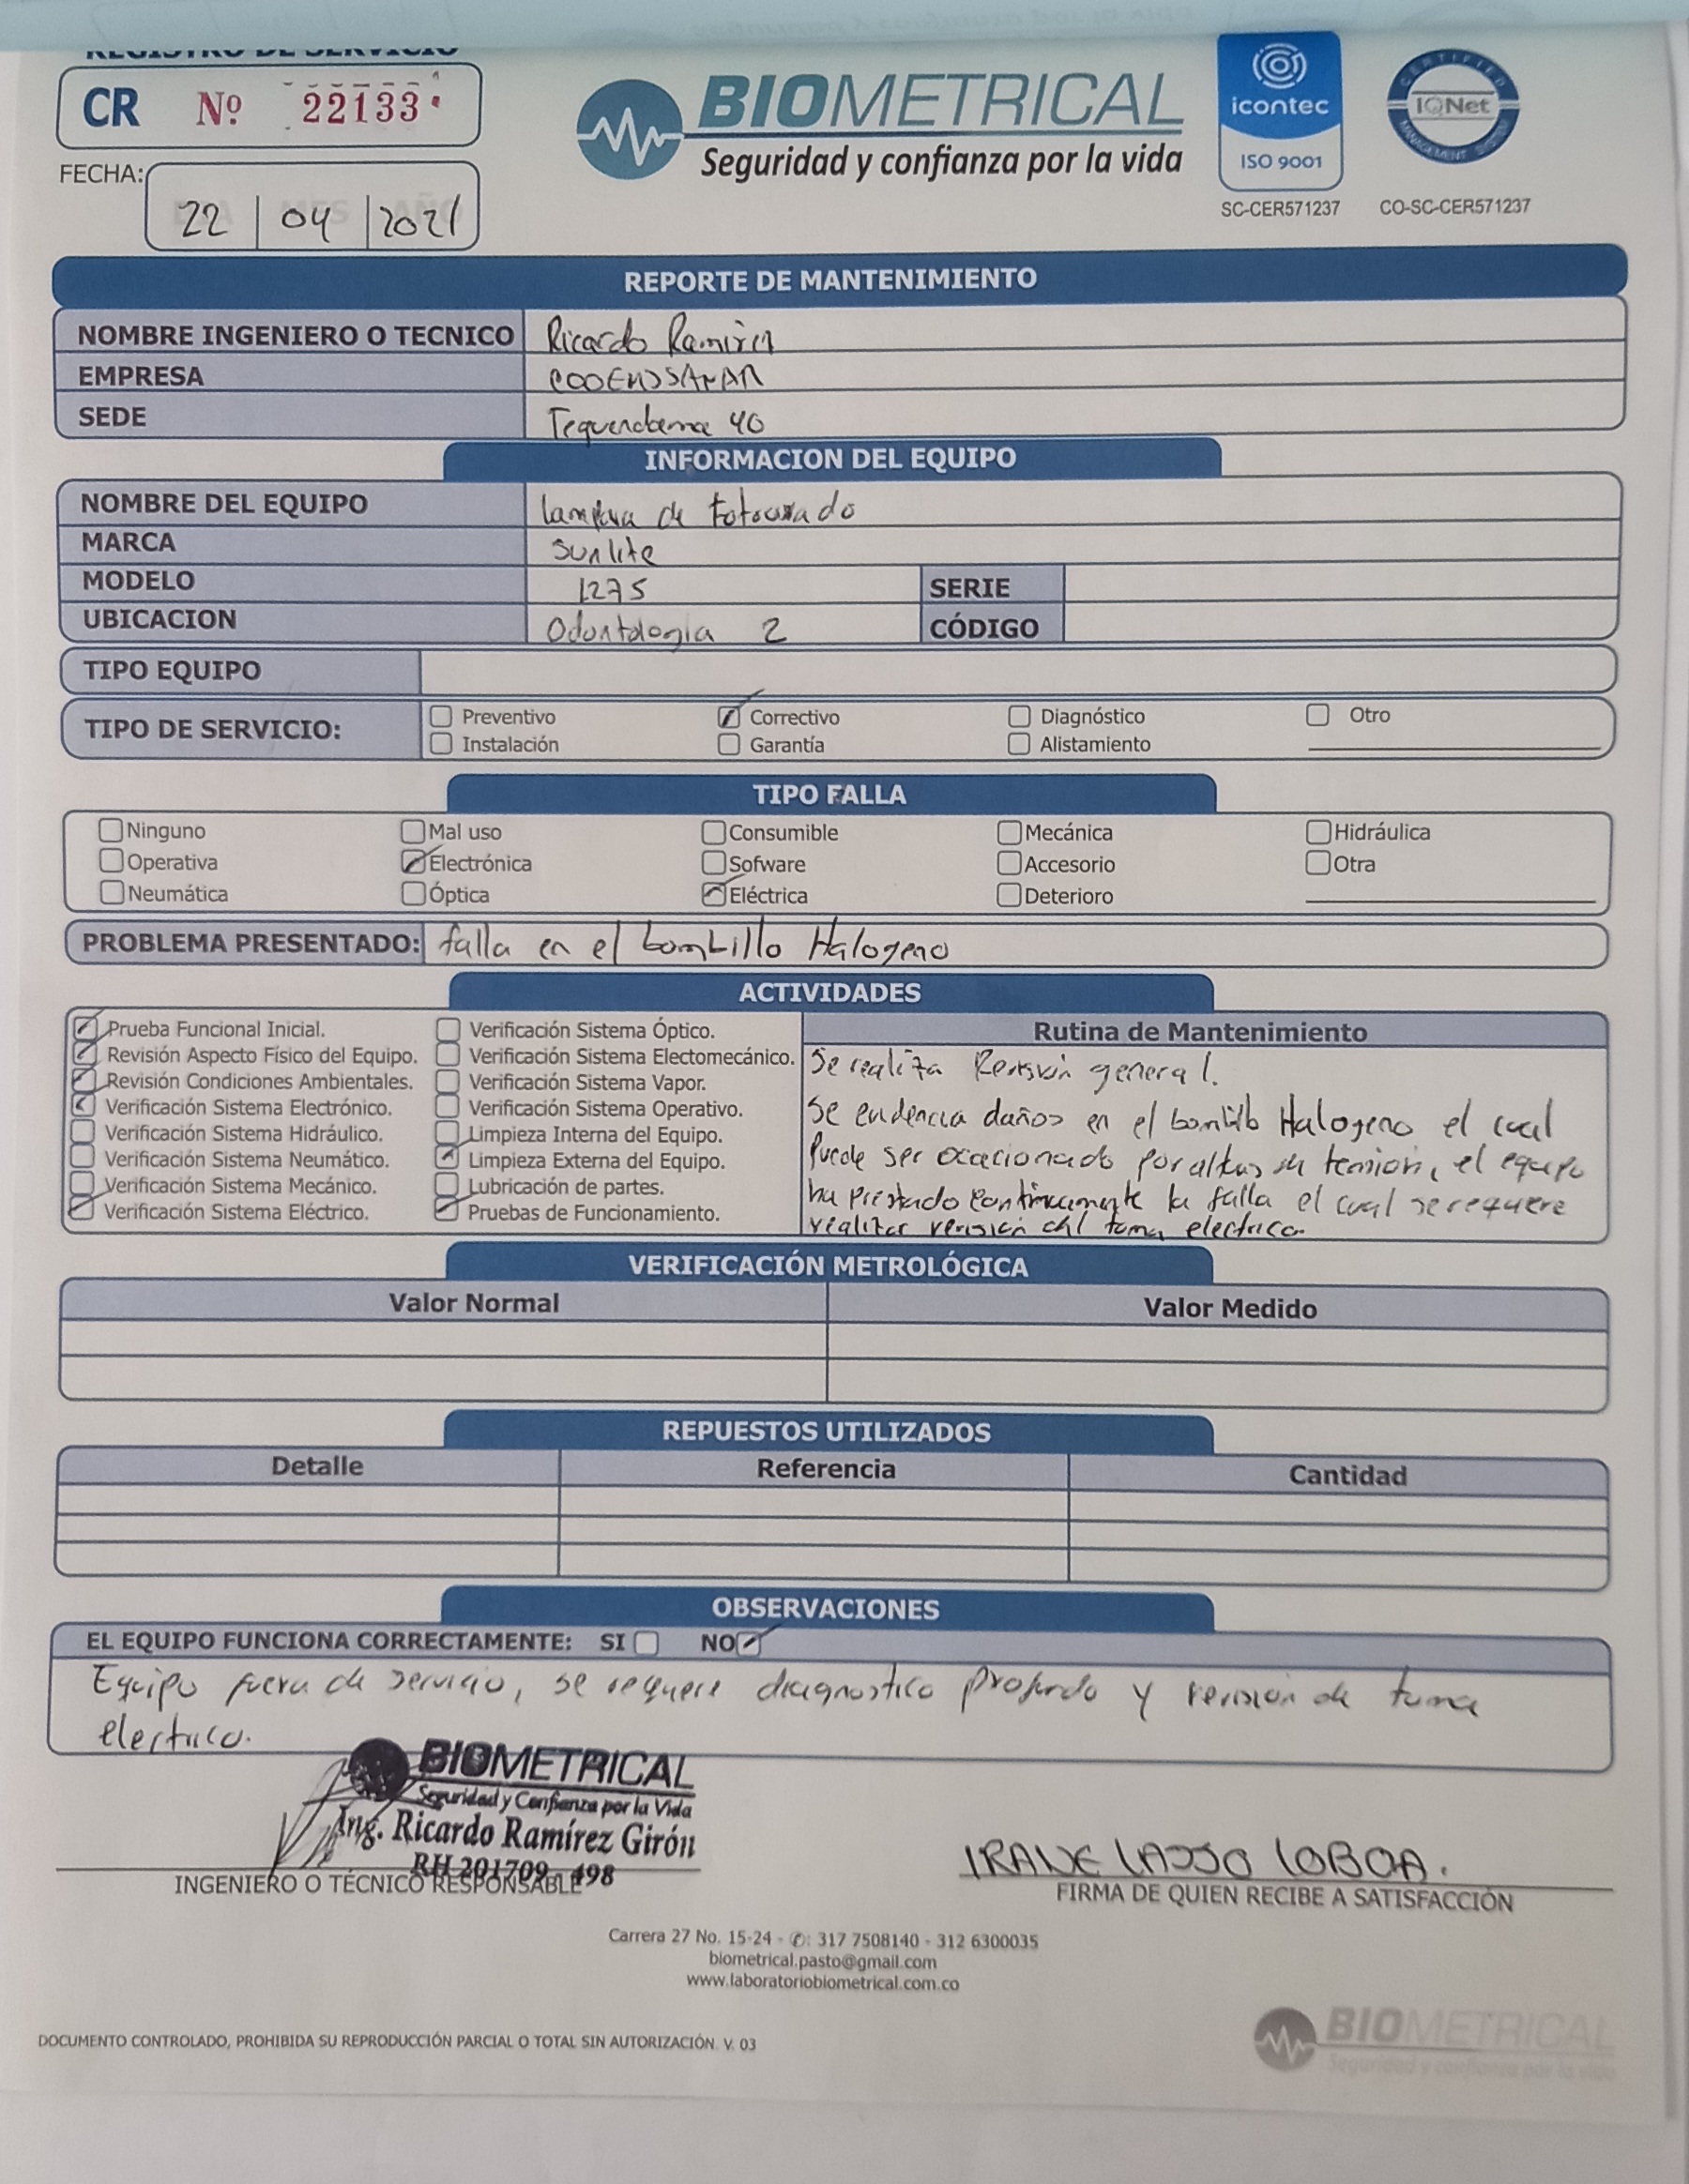 REGISTRO DE SERVICIO
CR Nº 22133
FECHA:
22 04 2021
BIOMETRICAL
Seguridad y confianza por la vida
icontec
ISO 9001
SC-CER571237
CERTIFIED
IQNet
MANAGEMENT SYSTEM
CO-SC-CER571237
REPORTE DE MANTENIMIENTO
NOMBRE INGENIERO O TECNICO Ricardo Ramirez
EMPRESA
SEDE Tequendama 40
INFORMACION DEL EQUIPO
NOMBRE DEL EQUIPO lampara de Fotocurado
MARCA Sunlite
MODELO 1275 SERIE
UBICACION Odontologia 2 CÓDIGO
TIPO EQUIPO
TIPO DE SERVICIO:
Preventivo Correctivo Diagnóstico Otro
Instalación Garantía Alistamiento
TIPO FALLA
Ninguno Mal uso Consumible Mecánica Hidráulica
Operativa Electrónica Sofware Accesorio Otra
Neumática Óptica Eléctrica Deterioro
PROBLEMA PRESENTADO: falla en el bombillo Halogeno
ACTIVIDADES
Prueba Funcional Inicial.
Revisión Aspecto Físico del Equipo.
Revisión Condiciones Ambientales.
Verificación Sistema Electrónico.
Verificación Sistema Hidráulico.
Verificación Sistema Neumático.
Verificación Sistema Mecánico.
Verificación Sistema Eléctrico.
Verificación Sistema Óptico.
Verificación Sistema Electomecánico.
Verificación Sistema Vapor.
Verificación Sistema Operativo.
Limpieza Interna del Equipo.
Limpieza Externa del Equipo.
Lubricación de partes.
Pruebas de Funcionamiento.
Rutina de Mantenimiento
Se realiza Revisión general.
Se evidencia daños en el bombillo Halogeno el cual
Puede ser ocacionado por altas en tension, el equipo
ha prestado continuamente la falla el cual se requere
realizar revisión del toma electrico.
VERIFICACIÓN METROLÓGICA
Valor Normal Valor Medido
REPUESTOS UTILIZADOS
Detalle Referencia Cantidad
OBSERVACIONES
EL EQUIPO FUNCIONA CORRECTAMENTE: SI NO
Equipo fuera de servicio, se requere diagnostico profundo y revision de toma
electrico.
BIOMETRICAL
Seguridad y Confianza por la Vida
Ing. Ricardo Ramírez Girón
RH 201709 - 498
INGENIERO O TÉCNICO RESPONSABLE
IRANE LASSO LOBOA.
FIRMA DE QUIEN RECIBE A SATISFACCIÓN
Carrera 27 No. 15-24 - ✆: 317 7508140 - 312 6300035
biometrical.pasto@gmail.com
www.laboratoriobiometrical.com.co
DOCUMENTO CONTROLADO, PROHIBIDA SU REPRODUCCIÓN PARCIAL O TOTAL SIN AUTORIZACIÓN. V. 03
BIOMETRICAL
Seguridad y confianza por la vida